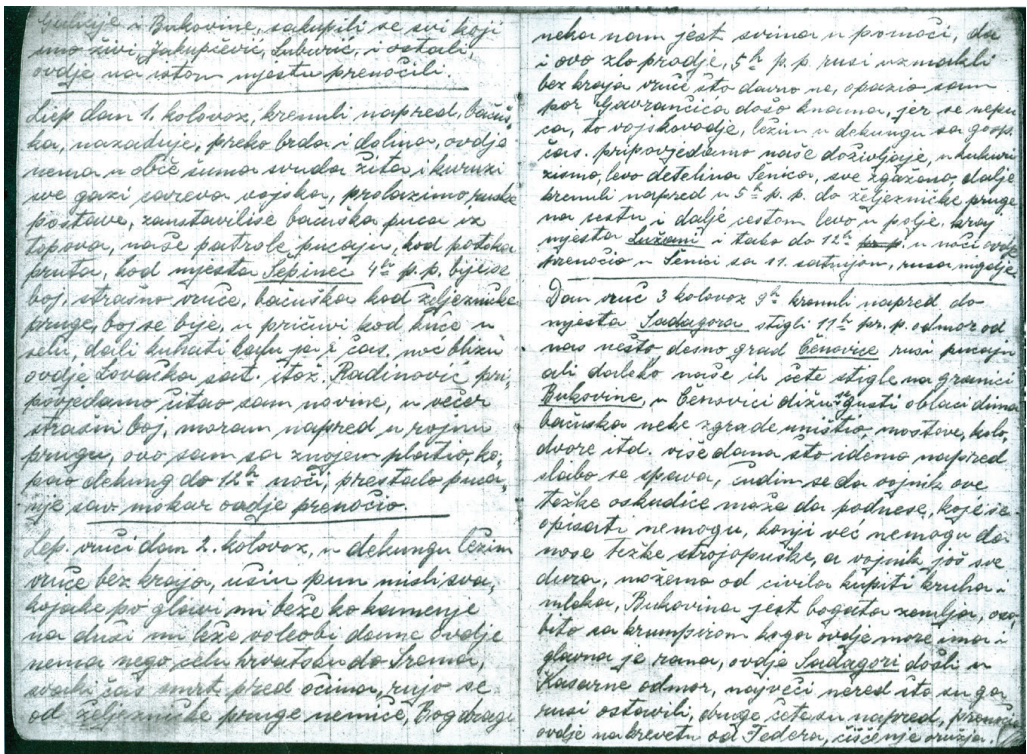 Galicije i Bukovine, sakupili se svi koji
smo živi, Jakupčević, Luburić, i ostali,
ovdje na istom mjestu prenoćili.
Liep dan 1. kolovoz, krenuli napred, baćuš-
ka, nazaduje, preko brda i dolina, ovdje
nema u obće šuma svuda žita i kuruzi
sve gazi careva vojska, prolazimo ruske
postave, zaustavilise baćuška puca iz
topova, naše patrole pucaju, kod potoka
pruta, kod mjesta Šepinec 4h p.p. bije se
boj, strašno vruće, baćuška kod željezničke
pruge, boj se bije, u pričuvi kod kuće u
selu, dali kuhati kafu ja i čas. noć blizu
ovdje Lovačka sat. stož. Radinović pri-
povjedamo čitao sam novine, u večer
strašni boj, moram napred u rojnu
prugu, ovo sam sa znojem platio, ko-
pao dekung do 12h noći, prestalo puca-
nje sav mokar ovdje prenoćio.
Lep. vrući dan 2. kolovoz, u dekungu ležim
vruće bez kraja, usiu pun misli sva-
kojake po glavi mi beže ko kamenje
na duši mi leže voleobi dome ovdje
nema nego celu hrvatsku do Srema,
svaki čas smrt pred očima, rujo se
od željezničke pruge nemiče, Bog dragi
neka nam jest svima u pomoći, da
i ovo zlo prodje, 5h p.p. rusi uzmakli
bez kraja vruće što davno ne, opazio sam
por. Gavrančića došo knama, jer se nepu
ca, to vojskovodje, ležim u dekungu sa gosp.
čas. pripovjedamo naše doživljaje, u kukuri
zismo, levo detelina Senica, sve zgaženo, dalje
krenuli napred u 5h p.p. do željezničke pruge
na cestu i dalje cestom levo u polje, kraj
mjesta Lužani i tako do 12h u noći ovdje
prenoćio u Senici sa 11. satnijom, rusa nigdje
Dan vruć 3 kolovoz 9h krenuli napred do
mjesta Sadagora stigli 11h pr. p. odmor od
nas nešto desno grad Černovice rusi pucaju
ali daleko naše ih čete stigle na granici
Bukovine, u Černovici dižu se gusti oblaci dima
baćuska neke zgrade uništio, mostove, kolo,
dvore itd. više dana što idemo napred
slabo se spava, čudim se da vojnik ove
težke oskudice može da podnese, koje se
opisati nemogu, konji već nemogu da
nose težke strojopuške, a vojnik još sve
dura, možemo od civila kupiti kruha i
mleka, Bukovina jest bogata zemlja, oso-
bito sa krumpirom koga ovdje more ima i
glavna je rana, ovdje Sadagori došli u
Kasarne odmor, najveći nered što su ga
rusi ostavili, druge čete su napred, prenoćio
ovdje na krevetu od Federa, čišćenje oružja.